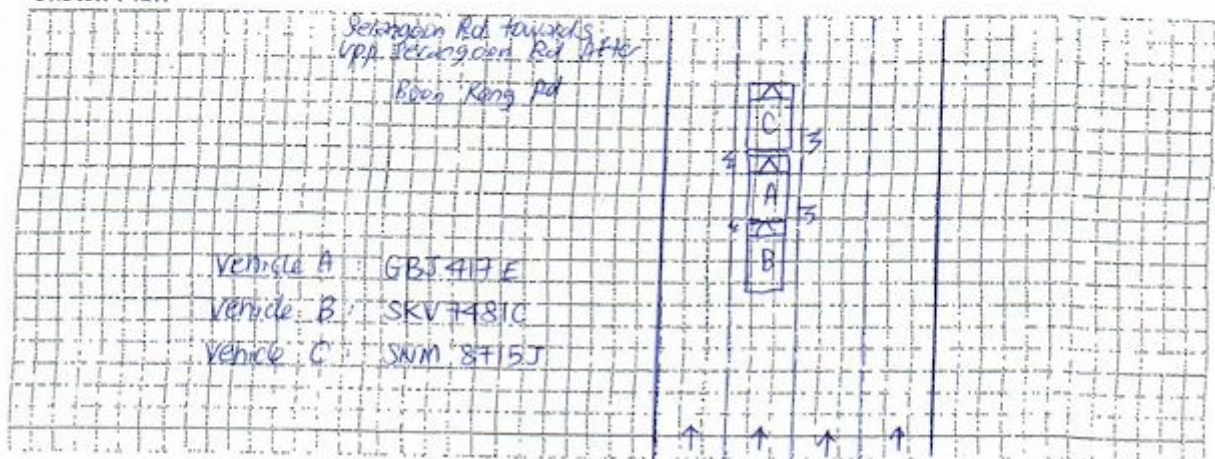 Serangoon Rd towards
Upp Serangoon Rd After
Boon Keng Rd
C
A
B
Vehicle A : GBJ 417 E
Vehicle B : SKV 7481C
Vehicle C : SNM 8715J